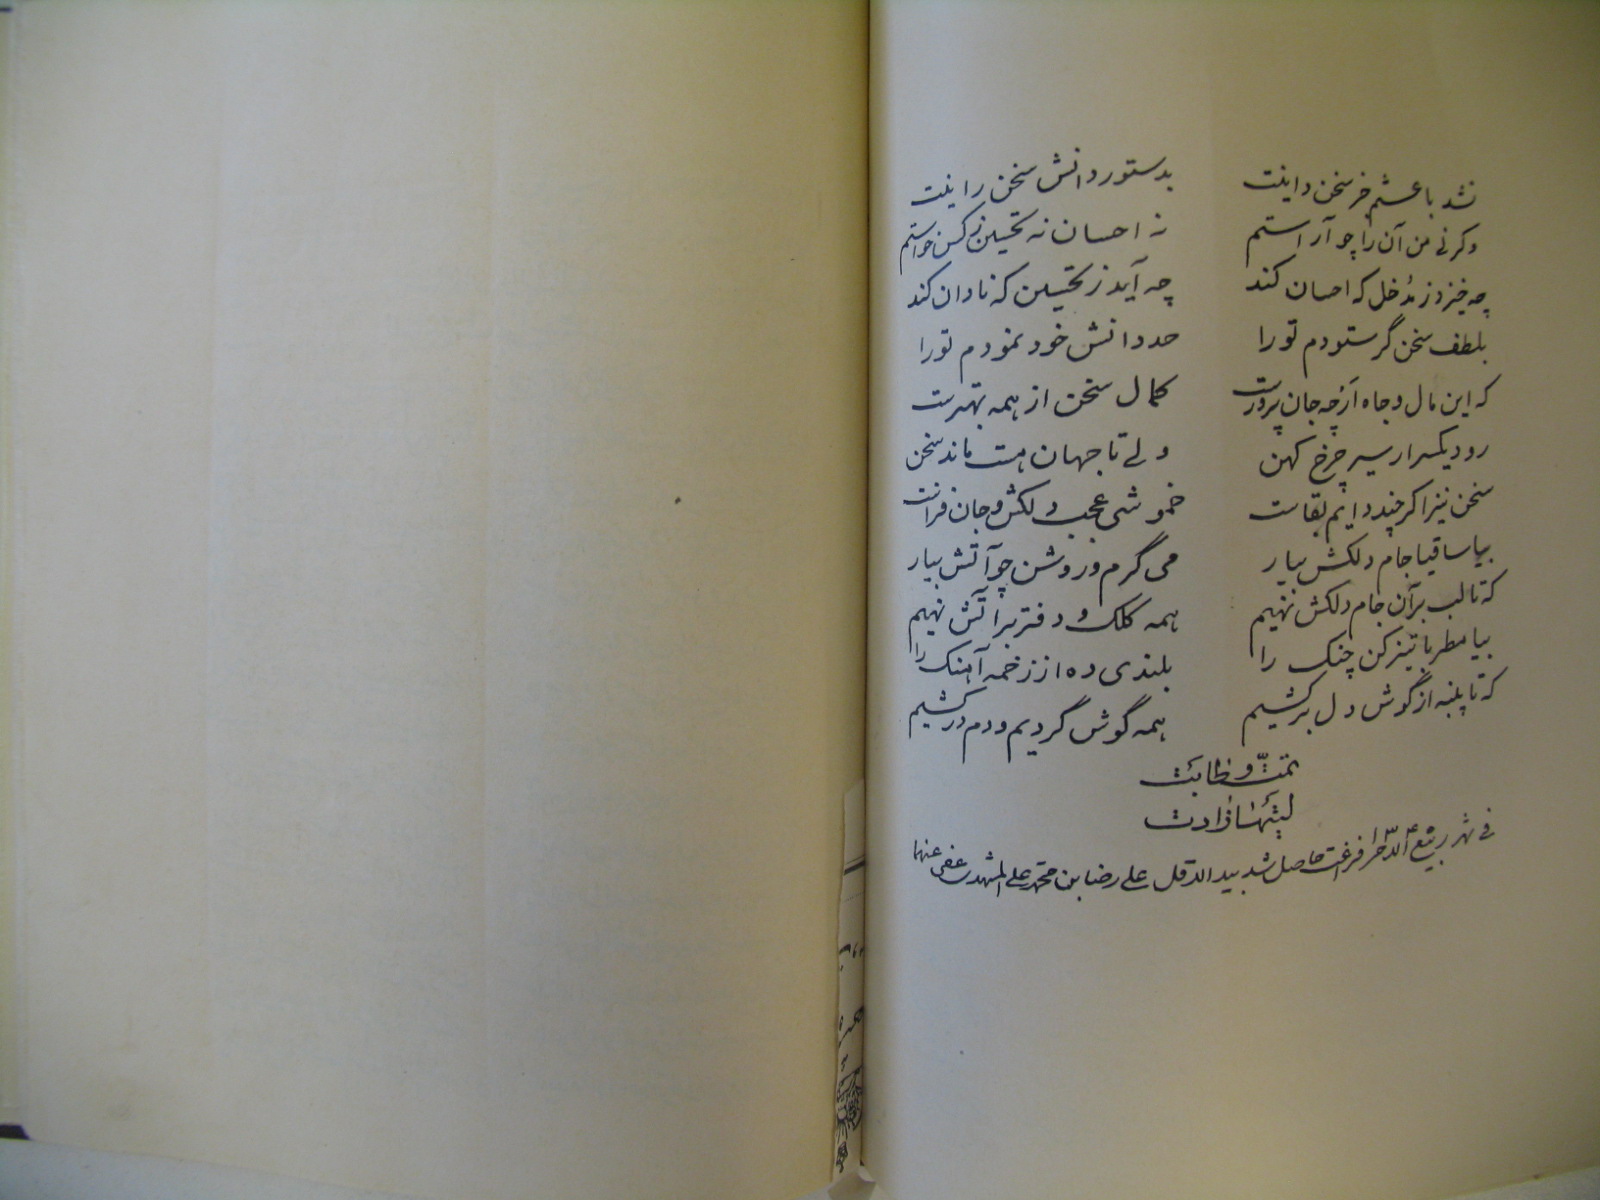 نشد باعثم خر سخن داینت بدستور دانش سخن راینت
وکرنی من آن را چو آراستم نه احسان نه تحسین ز کس خواستم
چه خیزد ز مُدخل که احسان کند چه آید ز تحسین که نادان کند
بلطف سخن گر ستودم تو را حد دانش خود نمودم تو را
که این مال وجاه ارچه جان پرورست کمال سخن از همه بهترست
رود یکسر از سیر چرخ کهن ولے تا جهان هست ماند سخن
سخن نیز اکر چند دایم بقاست خموشی عجب دلکش و جان فزاست
بیا ساقیا جام دلکش بیار می گرم و روشن چو آتش بیار
که تا لب بر آن جام دلکش نهیم همه کلک و دفتر بر آتش نهیم
بیا مطربا تیز کن چنک را بلندی ده از زخمه آهنک را
که تا پنبه از گوش دل برکشیم همه گوش گردیم و دم درکشیم
تمت و طابت
لیتها زادت
فی شهر ربیع الآخر فراغت حاصل شد بید اقل علی رضا بن محمد علی المشهدی عفی عنهما